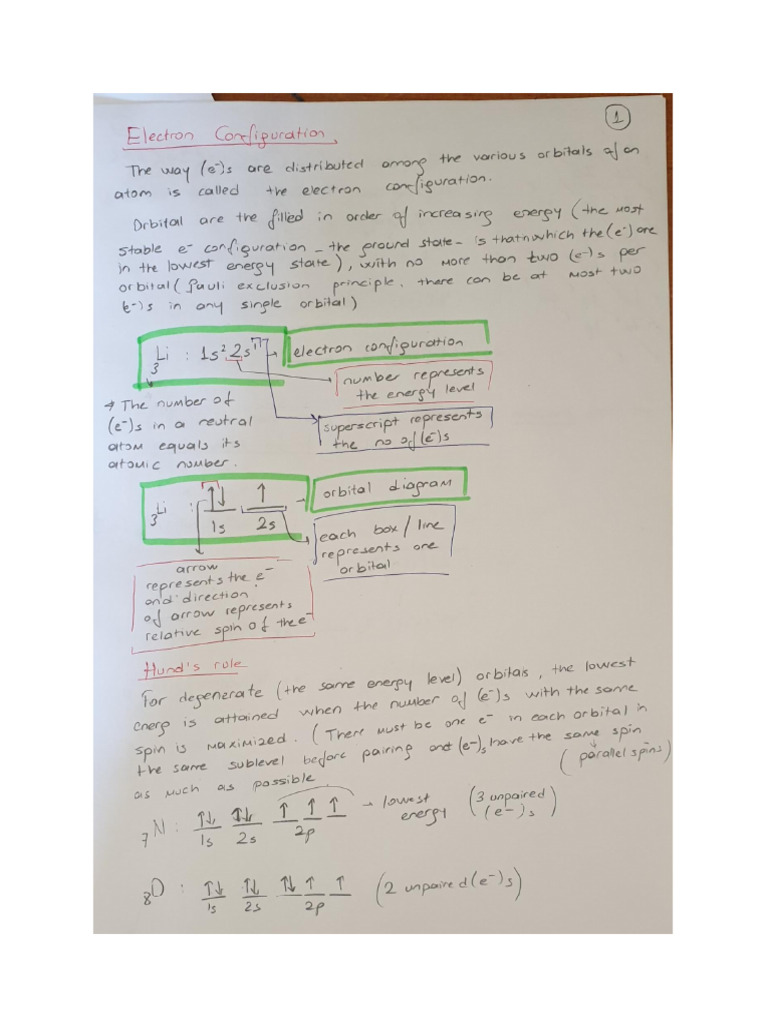 1
Electron Configuration
The way (e⁻)s are distributed among the various orbitals of an
atom is called the electron configuration.
Orbital are the filled in order of increasing energy (the most
stable e⁻ configuration - the ground state - is that in which the (e⁻) are
in the lowest energy state), with no more than two (e⁻)s per
orbital (Pauli exclusion principle, there can be at most two
e⁻)s in any single orbital)
₃Li : 1s² 2s¹ → electron configuration
number represents
the energy level
→ The number of
(e⁻)s in a neutral
atom equals its
atomic number.
superscript represents
the no of (e⁻)s
₃Li : ↑↓ ↑ → orbital diagram
1s 2s
each box / line
represents one
orbital
arrow
represents the e⁻
and direction
of arrow represents
relative spin of the e⁻
Hund's role
For degenerate (the same energy level) orbitals, the lowest
energ is attained when the number of (e⁻)s with the same
spin is maximized. (There must be one e⁻ in each orbital in
the same sublevel before pairing and (e⁻)s have the same spin
as much as possible
(parallel spins)
₇N : ↑↓ ↑↓ ↑ ↑ ↑ → lowest energy (3 unpaired (e⁻)s)
1s 2s 2p
₈O : ↑↓ ↑↓ ↑↓ ↑ ↑ (2 unpaired (e⁻)s)
1s 2s 2p